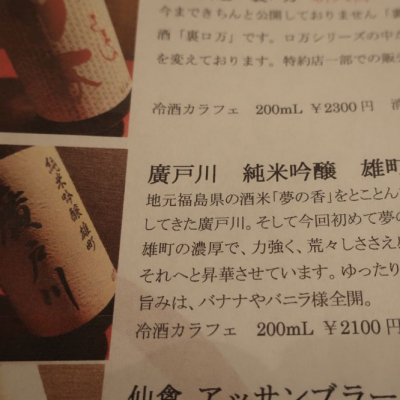 今まできちんと公開しておりません「裏
酒「裏ロ万」です。ロ万シリーズの中か
を変えております。特約店一部での販
冷酒カラフェ　200mL ￥2300円
廣戸川　純米吟醸　雄町
地元福島県の酒米「夢の香」をとことん
してきた廣戸川。そして今回初めて夢の
雄町の濃厚で、力強く、荒々しささえ
それへと昇華させています。ゆったり
旨みは、バナナやバニラ様全開。
冷酒カラフェ　200mL ￥2100円
純米吟醸 雄町
廣戸川
仙禽 アッサンブラー